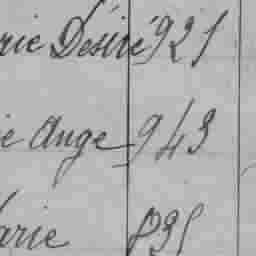 rie Désiré 921
ie Ange 943
arie 835